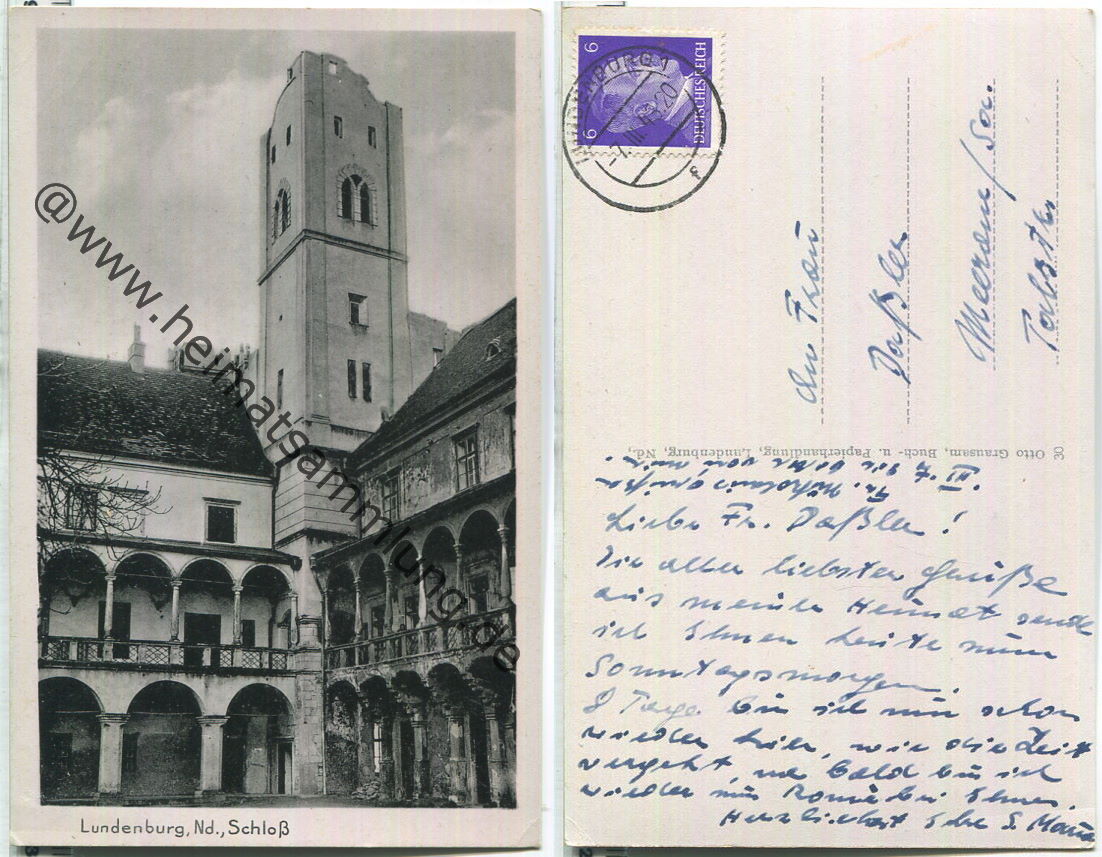 @www.heimatsammlung.de
Lundenburg, Nd., Schloß
6
6
DEUTSCHES REICH
LUNDENBURG 1
-7.III.43.20
f
An Frau
Daßler
Meerane/Sa.
30
Otto Grausam, Buch- u. Papierhandlung, Lundenburg, Nd.,
Liebe Fr. Daßler!
Die aller liebsten Grüße
aus meiner Heimat sende
ich Ihnen heute zum
Sonntagsmorgen.
8 Tage bin ich nun schon
wieder hier, wie die Zeit
vergeht, na bald bin ich
wieder bei Ihnen.
Herzlichst Ihre